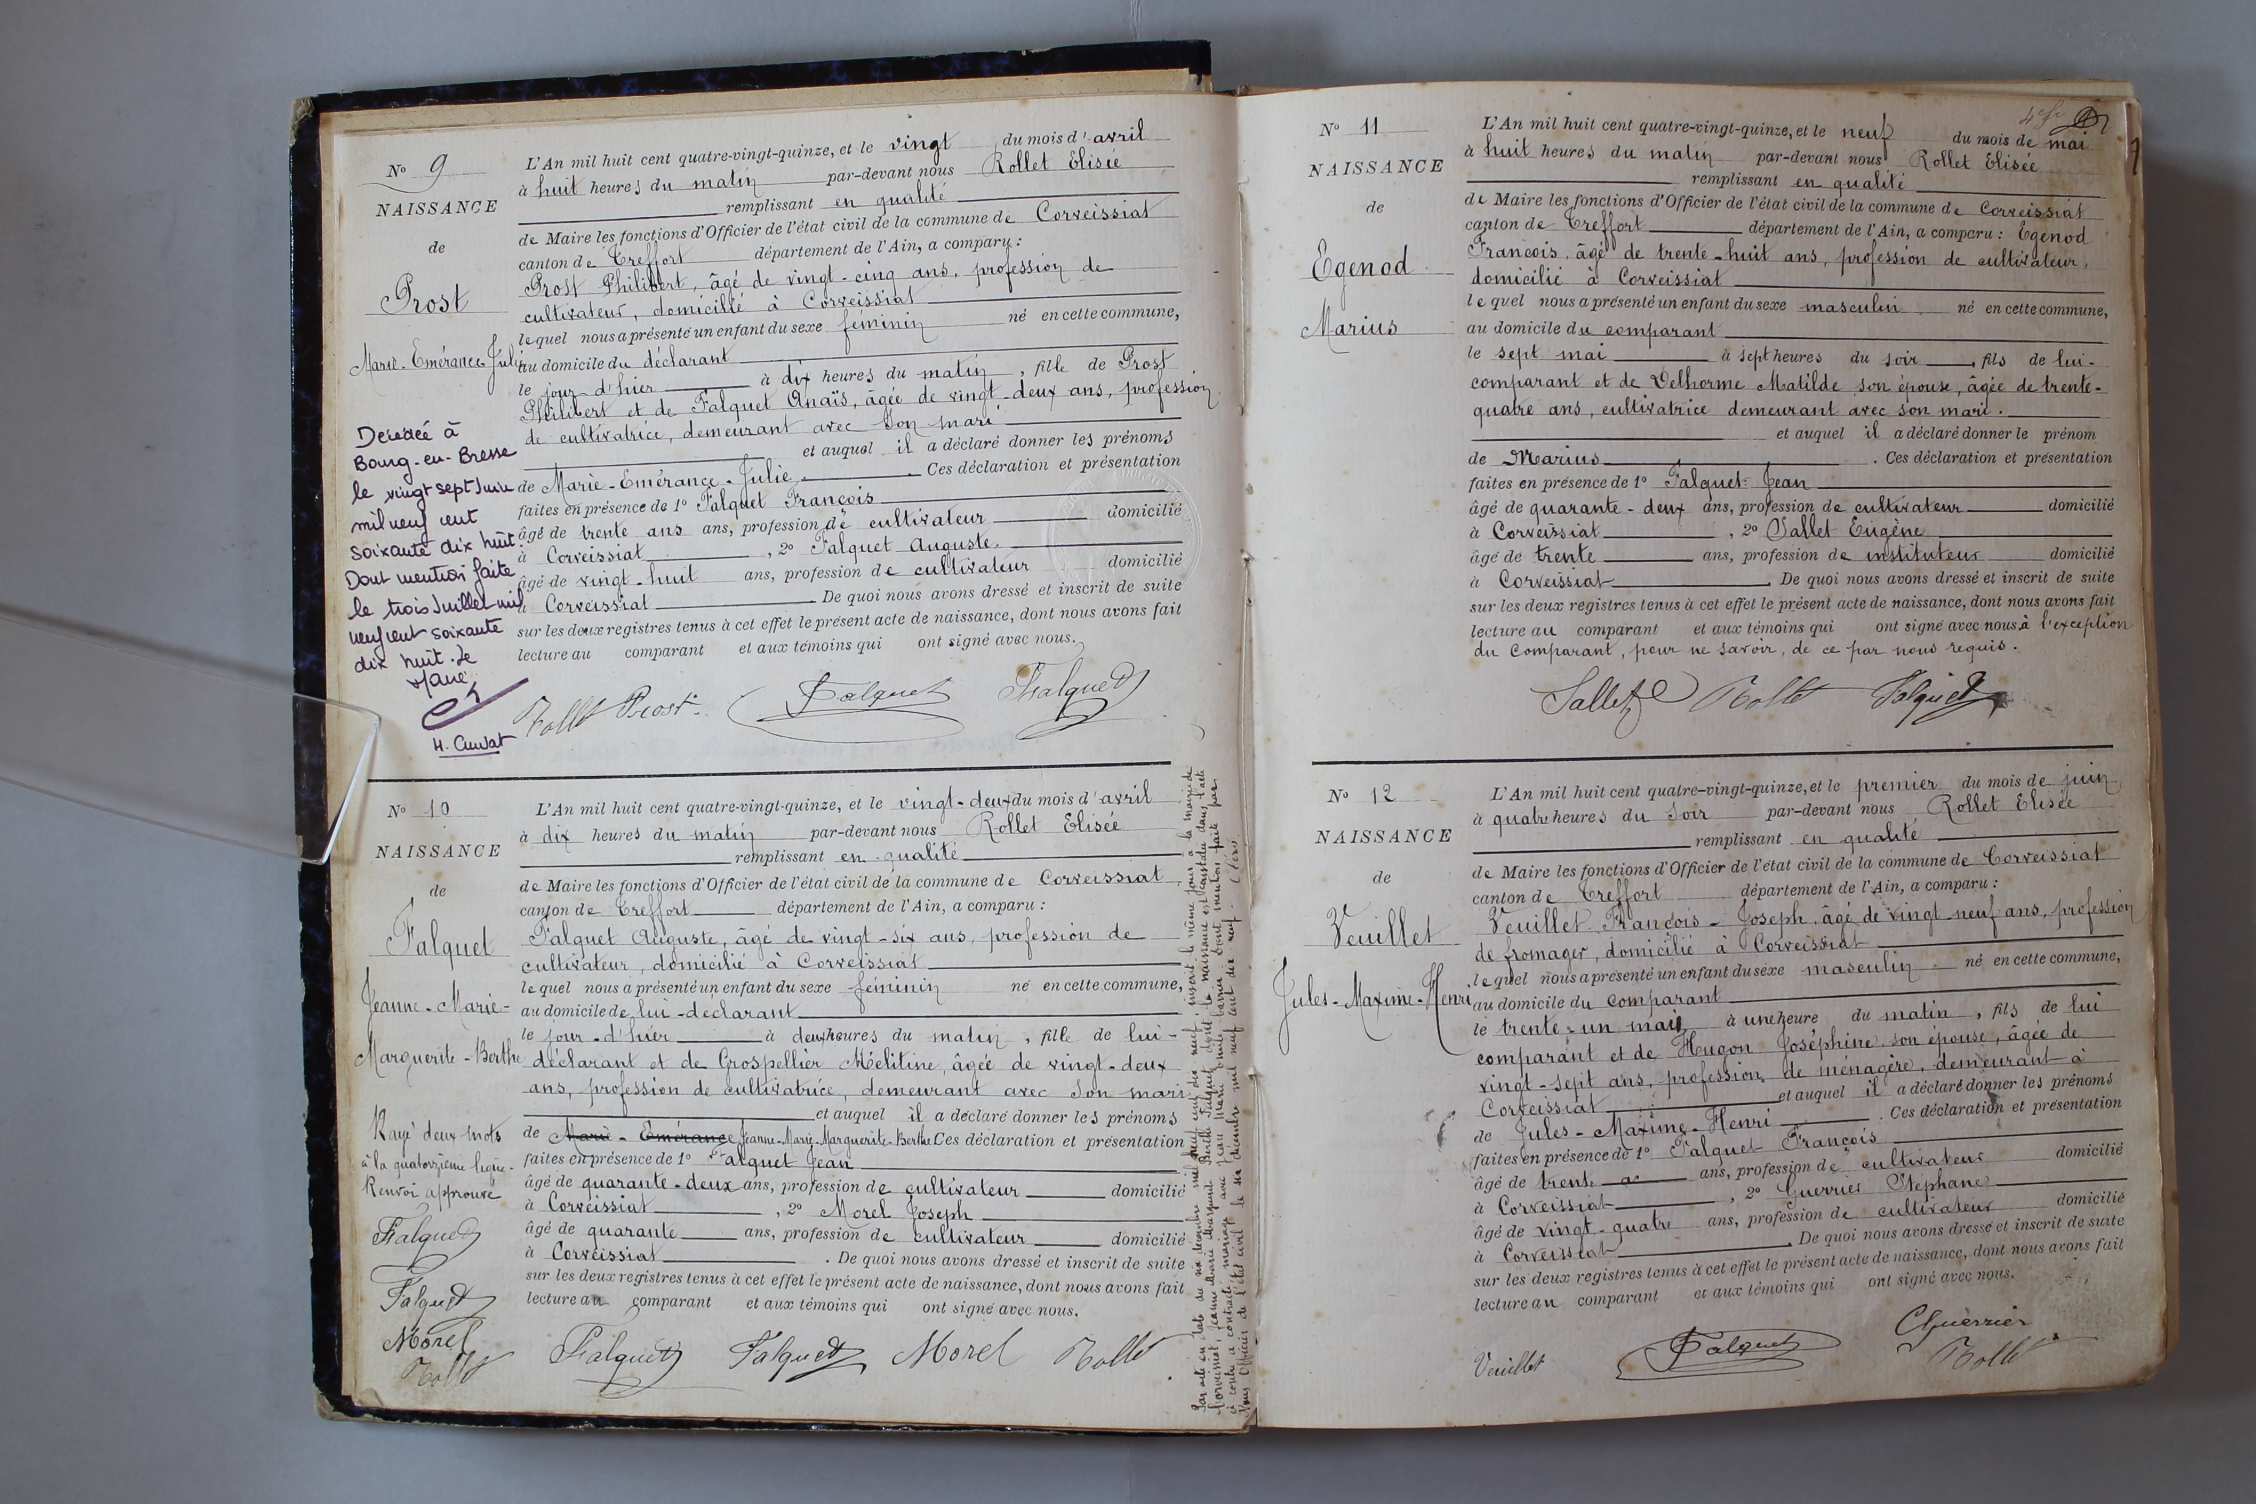 No 9
NAISSANCE
de
Prost
Marie-Emérance-Julie
Décédée à
Bourg-en-Bresse
le vingt sept Juin
mil neuf cent
soixante dix huit.
Dont mention faite
le trois Juillet mil
neuf cent soixante
dix huit. Le
Maire
L'An mil huit cent quatre-vingt-quinze, et le vingt du mois d'avril
à huit heures du matin par-devant nous Rollet Elisée
remplissant en qualité
de Maire les fonctions d'Officier de l'état civil de la commune de Corveissiat
canton de Treffort département de l'Ain, a comparu :
Prost Philibert, âgé de vingt-cinq ans, profession de
cultivateur, domicilié à Corveissiat
lequel nous a présenté un enfant du sexe féminin né en cette commune,
au domicile du déclarant
le jour d'hier à dix heures du matin, fille de Prost
Philibert et de Falquet Anaïs, âgée de vingt-deux ans, profession
de cultivatrice, demeurant avec son mari
et auquel il a déclaré donner les prénoms
de Marie-Emérance-Julie. Ces déclaration et présentation
faites en présence de 1° Falquet François
âgé de trente ans ans, profession de cultivateur domicilié
à Corveissiat, 2° Falquet Auguste
âgé de vingt-huit ans, profession de cultivateur domicilié
à Corveissiat De quoi nous avons dressé et inscrit de suite
sur les deux registres tenus à cet effet le présent acte de naissance, dont nous avons fait
lecture au comparant et aux témoins qui ont signé avec nous.
Rollet Prost Falquet Falquet
No 10
NAISSANCE
de
Falquet
Jeanne-Marie-
Marguerite-Berthe
Rayé deux mots
à la quatorzième ligne.
Renvoi approuvé
Falquet
Falquet
Morel
Rollet
L'An mil huit cent quatre-vingt-quinze, et le vingt-deux du mois d'avril
à dix heures du matin par-devant nous Rollet Elisée
remplissant en qualité
de Maire les fonctions d'Officier de l'état civil de la commune de Corveissiat
canton de Treffort département de l'Ain, a comparu :
Falquet Auguste, âgé de vingt-six ans, profession de
cultivateur, domicilié à Corveissiat
lequel nous a présenté un enfant du sexe féminin né en cette commune,
au domicile de lui-déclarant
le jour-d'hier à deux heures du matin, fille de lui-
déclarant et de Grospellier Mélitine, âgée de vingt-deux
ans, profession de cultivatrice, demeurant avec son mari
et auquel il a déclaré donner les prénoms
de Marie-Emérance Jeanne-Marie-Marguerite-Berthe Ces déclaration et présentation
faites en présence de 1° Falquet Jean
âgé de quarante-deux ans, profession de cultivateur domicilié
à Corveissiat, 2° Morel Joseph
âgé de quarante ans, profession de cultivateur domicilié
à Corveissiat. De quoi nous avons dressé et inscrit de suite
sur les deux registres tenus à cet effet le présent acte de naissance, dont nous avons fait
lecture au comparant et aux témoins qui ont signé avec nous.
Falquet Falquet Morel Rollet
Par acte en date du six décembre mil neuf cent dix neuf, inscrit le même jour à la mairie de
Jeanne Marie Marguerite Berthe Falquet dont la naissance est constatée dans l'acte
ci contre a contracté mariage avec Jean Marie Dont mention faite par
Nous Officier de l'état civil le six décembre mil neuf cent dix neuf.
No 11
NAISSANCE
de
Egenod
Marius
L'An mil huit cent quatre-vingt-quinze, et le neuf du mois de mai
à huit heures du matin par-devant nous Rollet Elisée
remplissant en qualité
de Maire les fonctions d'Officier de l'état civil de la commune de Corveissiat
canton de Treffort département de l'Ain, a comparu : Egenod
François, âgé de trente-huit ans, profession de cultivateur,
domicilié à Corveissiat
lequel nous a présenté un enfant du sexe masculin né en cette commune,
au domicile du comparant
le sept mai à sept heures du soir, fils de lui-
comparant et de Delhorme Matilde son épouse, âgée de trente-
quatre ans, cultivatrice demeurant avec son mari.
et auquel il a déclaré donner le prénom
de Marius. Ces déclaration et présentation
faites en présence de 1° Falquet Jean
âgé de quarante-deux ans, profession de cultivateur domicilié
à Corveissiat, 2° Sallet Eugène
âgé de trente ans, profession de instituteur domicilié
à Corveissiat. De quoi nous avons dressé et inscrit de suite
sur les deux registres tenus à cet effet le présent acte de naissance, dont nous avons fait
lecture au comparant et aux témoins qui ont signé avec nous à l'exception
du Comparant, pour ne savoir, de ce par nous requis.
Sallet Rollet Falquet
No 12
NAISSANCE
de
Veuillet
Jules-Maxime-Henri
L'An mil huit cent quatre-vingt-quinze, et le premier du mois de juin
à quatre heures du soir par-devant nous Rollet Elisée
remplissant en qualité
de Maire les fonctions d'Officier de l'état civil de la commune de Corveissiat
canton de Treffort département de l'Ain, a comparu :
Veuillet François-Joseph, âgé de vingt-neuf ans, profession
de fromager, domicilié à Corveissiat
lequel nous a présenté un enfant du sexe masculin né en cette commune,
au domicile du comparant
le trente-un mai à une heure du matin, fils de lui
comparant et de Hugon Joséphine son épouse, âgée de
vingt-sept ans, profession de ménagère, demeurant à
Corveissiat et auquel il a déclaré donner les prénoms
de Jules-Maxime-Henri. Ces déclaration et présentation
faites en présence de 1° Falquet François
âgé de trente ans, profession de cultivateur domicilié
à Corveissiat, 2° Guerrier Stéphane
âgé de vingt-quatre ans, profession de cultivateur domicilié
à Corveissiat. De quoi nous avons dressé et inscrit de suite
sur les deux registres tenus à cet effet le présent acte de naissance, dont nous avons fait
lecture au comparant et aux témoins qui ont signé avec nous.
Veuillet Falquet Guerrier
Rollet